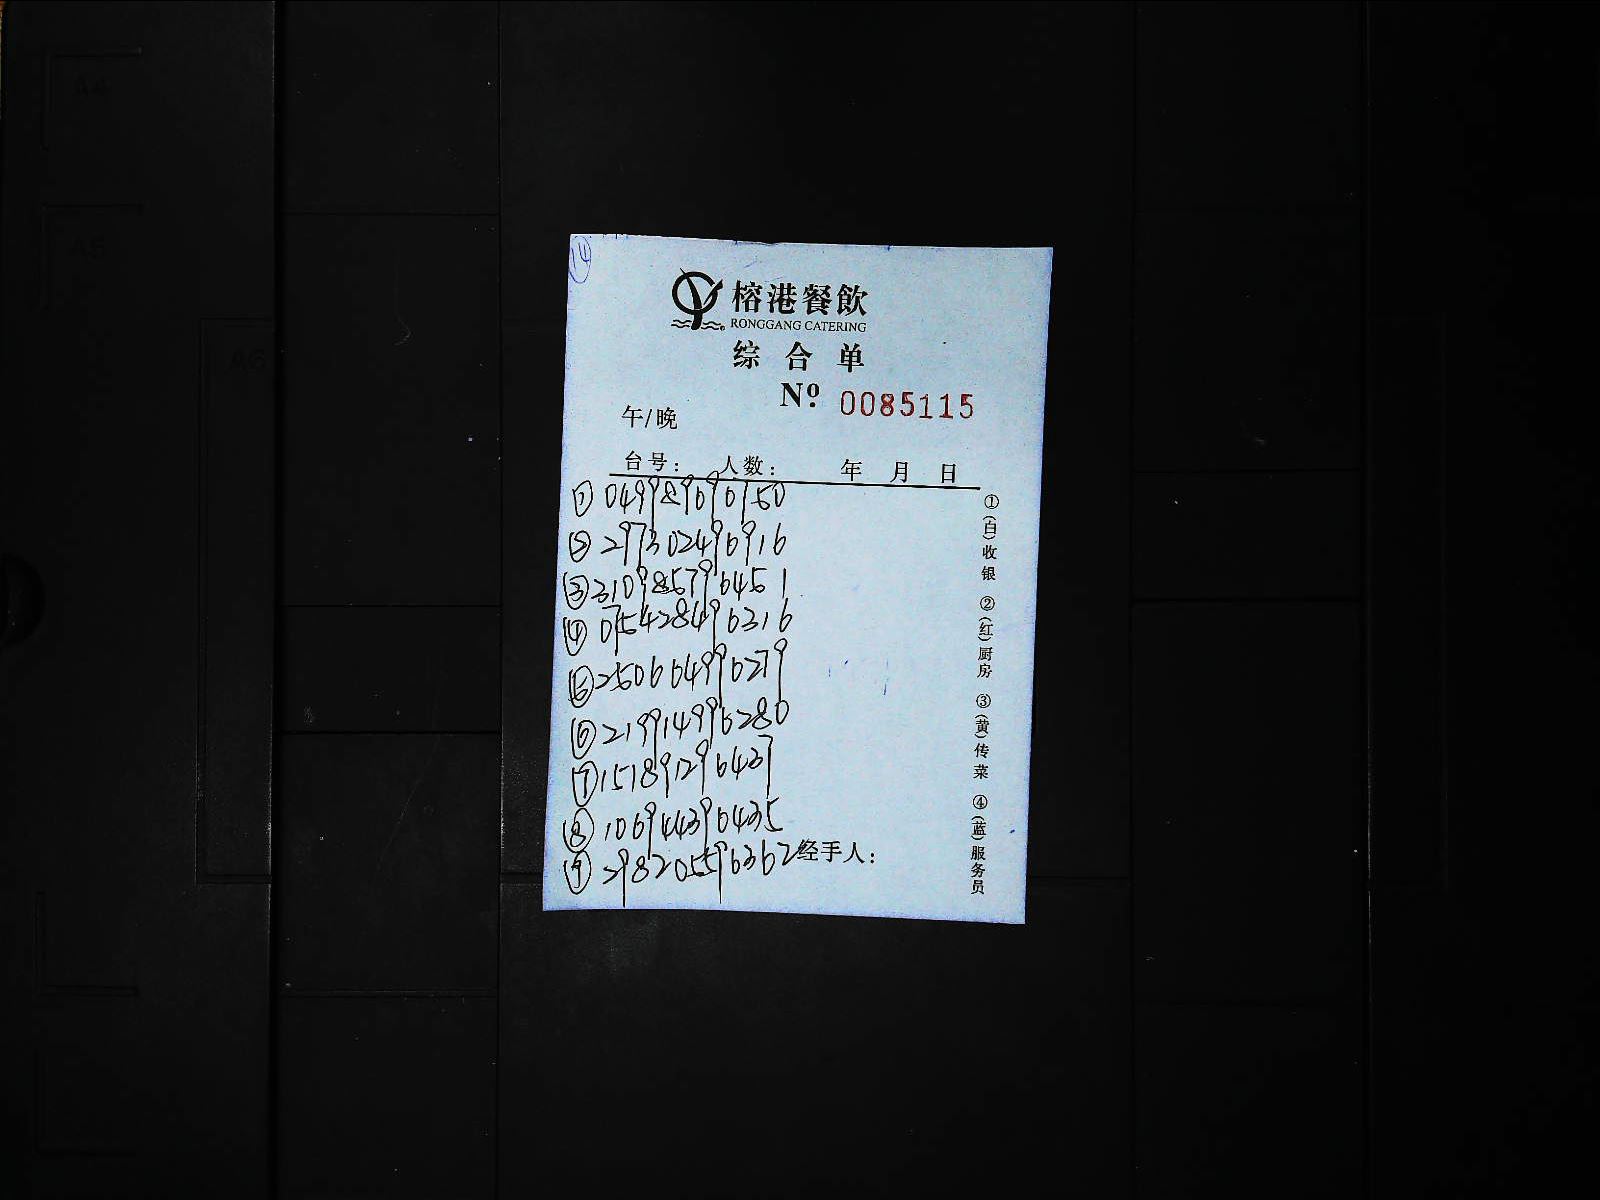 ⑭
榕港餐飲
RONGGANG CATERING
综合单
Nº 0085115
午/晚
台号: 人数: 年 月 日
① 04998969150
② 297302496916
③ 310985796451
④ 075428496316
⑤ 250664996279
⑥ 219914996280
⑦ 151891296437
⑧ 106944396435
⑨ 298205596362
经手人:
①(白)收银 ②(红)厨房 ③(黄)传菜 ④(蓝)服务员